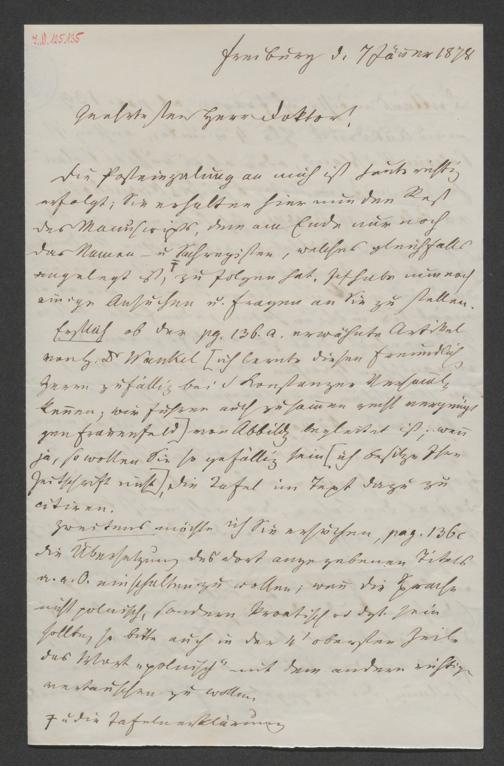 I.N. 125.135
Freiburg d. 7 Jänner 1878
Geehrtester Herr Doktor!
Die Posteinzalung an mich ist heute richtig
erfolgt; Sie erhalten hier nun den Rest
des Manuscripts, dem am Ende nur noch
das Namen- u Sachregister, welches gleichfalls
angelegt ist, zu folgen hat. Ich habe nur noch
einige Ansuchen u. Fragen an Sie zu stellen.
Erstlich ob der pg. 136. a. erwähnte Artikel
von H. Dr Wankel [ich lernte diesen freundlich
Herrn zufällig bei d Konstanzer Versamlg
kennen, wir fuhren auch zusammen recht vergnügt
gen Frauenfeld] von Abbildg begleitet ist; wenn
ja, so wollen Sie so gefällig sein [ich besitze Ihre
Zeitschrift nicht], die Tafel im Text dazu zu
citiren.
Zweitens möchte ich Sie ersuchen, pag. 136c
die Übersetzung des dort angegebenen Titels
a. a. O. einschalten zu wollen; wenn die Sprache
nicht polnisch, sondern kroatisch od dgl. sein
sollte, so bitte auch in der 4t obersten Zeile
das Wort „polnisch" mit dem andern richtig
vertauschen zu wollen.
u die Tafelnerklärung